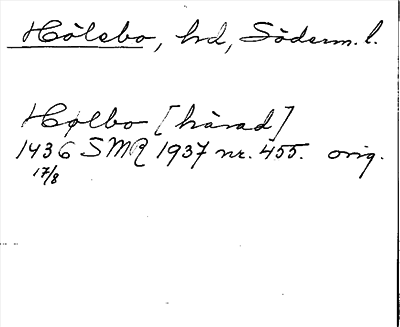 Hölebo, hd, Söderm. l.
Hølbo [härad]
1436 SMR 1937 nr. 455. orig.
17/8